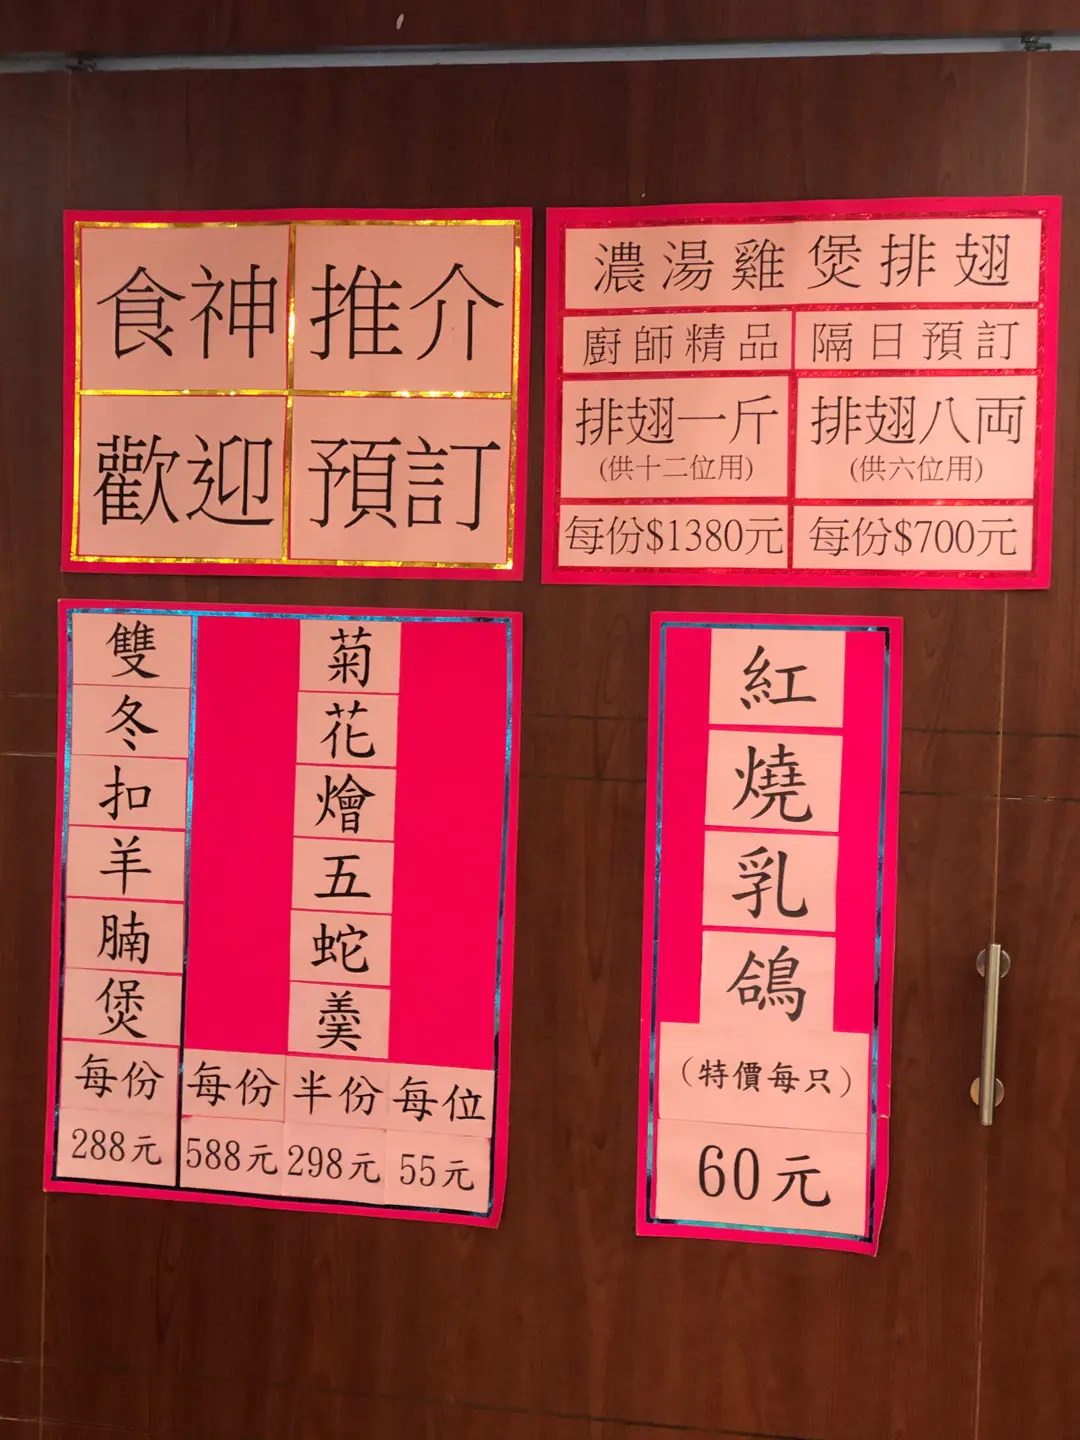 食神推介
歡迎預訂
濃湯雞煲排翅
廚師精品 隔日預訂
排翅一斤 排翅八両
(供十二位用) (供六位用)
每份$1380元 每份$700元
雙冬扣羊腩煲
每份
288元
菊花燴五蛇羹
每份 半份 每位
588元 298元 55元
紅燒乳鴿
（特價每只）
60元